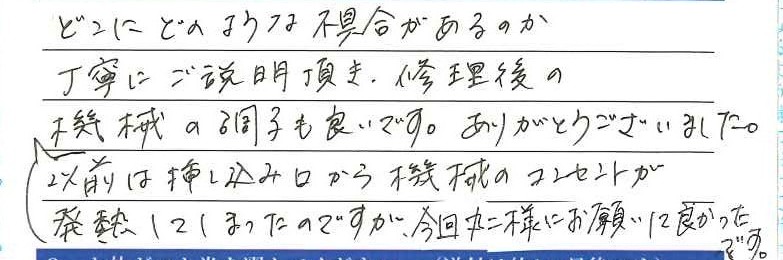 どこにどのような不具合があるのか
丁寧にご説明頂き、修理後の
機械の調子も良いです。ありがとうございました。
以前は挿し込み口から機械のコンセントが
発熱してしまったのですが、今回丸二様にお願いして良かった
です。